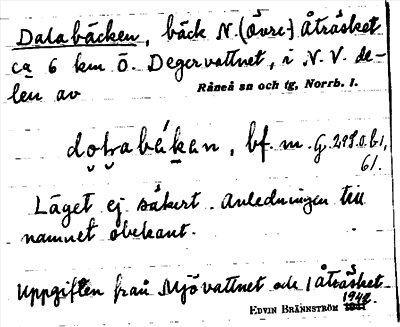 Dalabäcken, bäck N. (Övre-) Åträsket
ca 6 km Ö. Degervattnet, i N.V. de-
len av
Råneå sn och tg, Norrb. l.
dořabékan, bf. m.
61.
Läget ej säkert. Anledningen till
namnet obekant.
Uppgiften från Mjövattnet och Åträsket
1942.
EDVIN BRÄNNSTRÖM